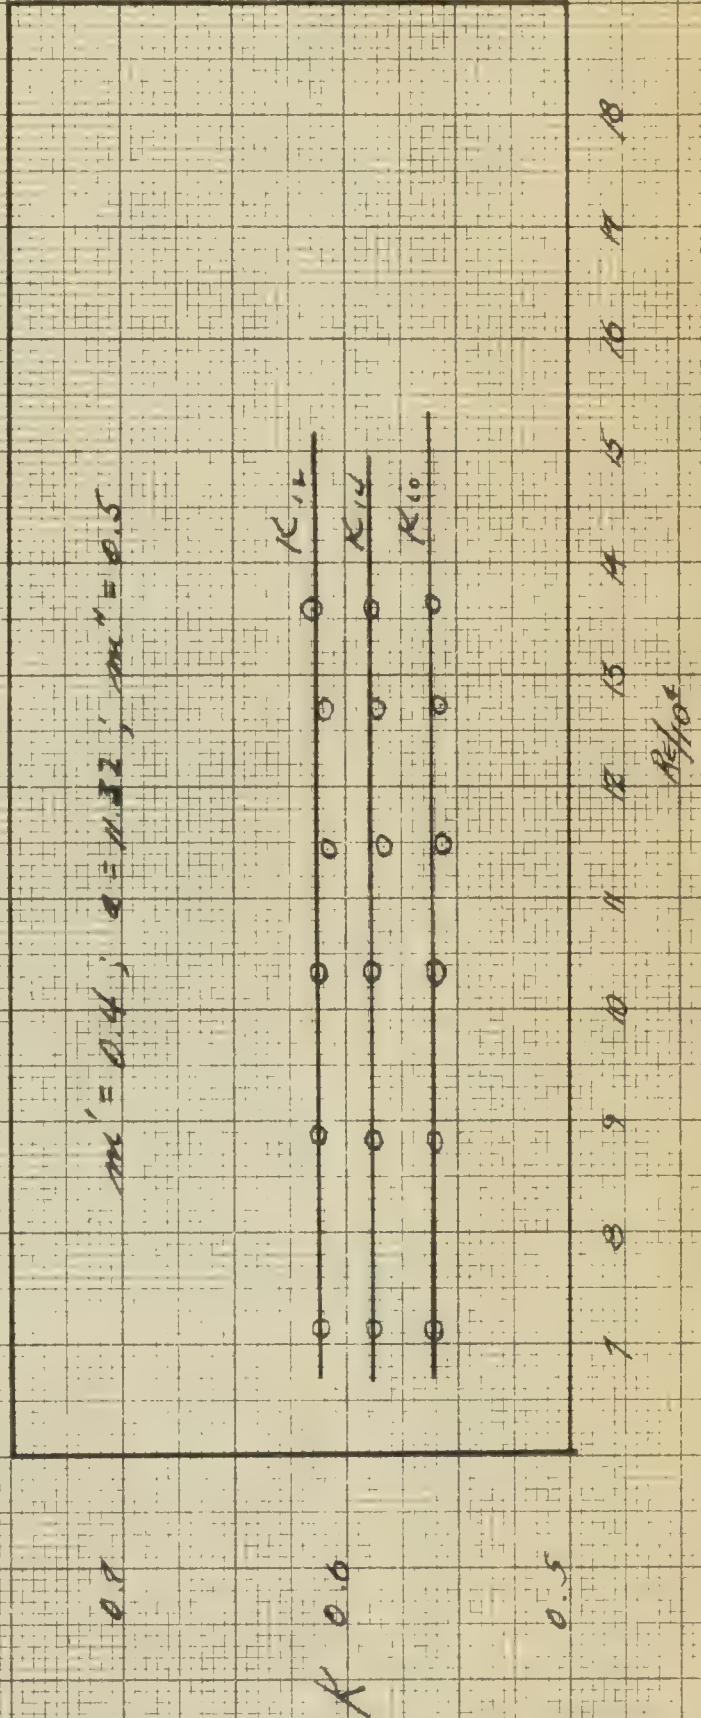 m' = 0.4; a = 11.32; m" = 0.5
K12
K14
K10
0.7
K 0.6
0.5
7 8 9 10 11 12 13 14 15 16 17 18
Re/10⁴